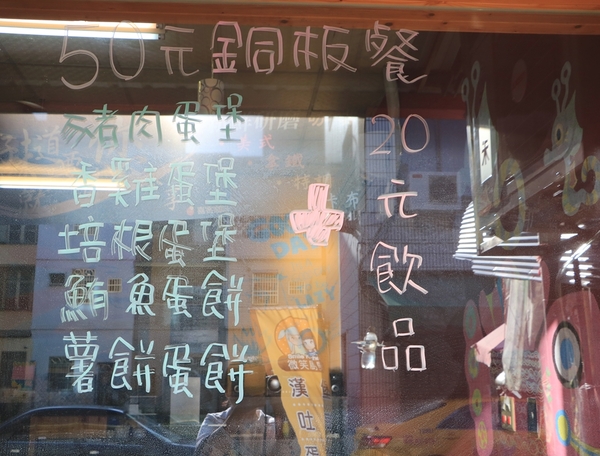 50元銅板餐
豬肉蛋堡
香雞蛋堡
培根蛋堡
鮪魚蛋餅
薯餅蛋餅
+
20元飲品
漢
吐
蛋